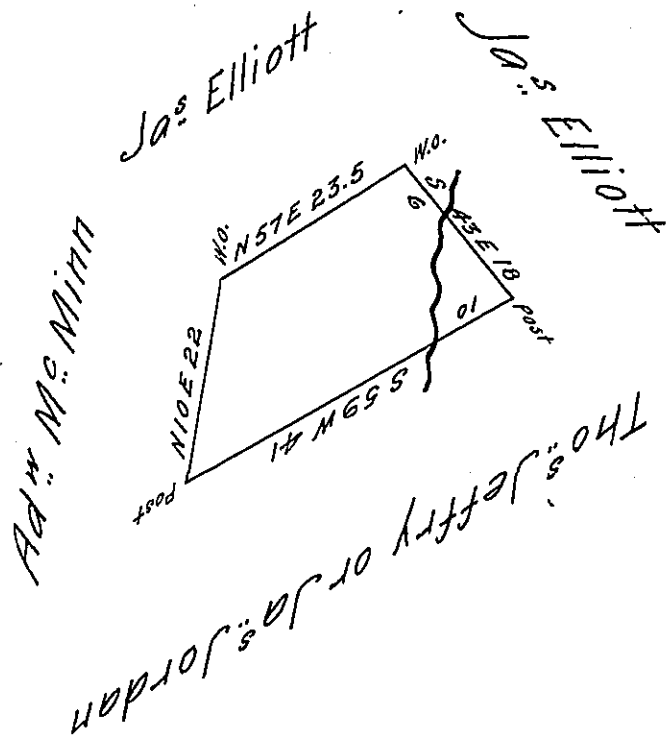 Jaˢ Elliott
Jaˢ Elliott
Adʷ Mᶜ Minn
Thoˢ Jeffry or Jaˢ Jordan
W.O.
N 57 E 23.5
W.O.
S 43 E 18
6
10
Post
S 59 W 41
Post
N 10 E 22